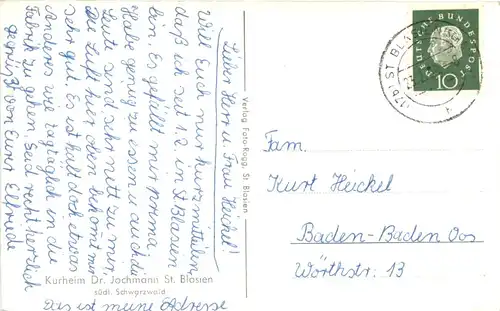 Lieber Herr u. Frau Heickel!
Will Euch nur kurz mitteilen
daß ich seit 1.2. in St. Blasien
bin. Es gefällt mir prima
Habe genug zu essen u. auch die
Leute sind sehr nett zu mir.
Die Luft hier oben bekommt mir
sehr gut. Es ist halt doch etwas
Anderes wie tagtäglich in die
Fabrik zu gehen. Seid recht herzlich
gegrüßt von Eurer Elfriede
Kurheim Dr. Jochmann St. Blasien
südl. Schwarzwald
Das ist meine Adresse
Verlag Foto-Rogg, St. Blasien
DEUTSCHE BUNDESPOST
10
(17b) ST BLASIEN
Fam.
Kurt Heickel
Baden-Baden Oos
Wörthstr. 13